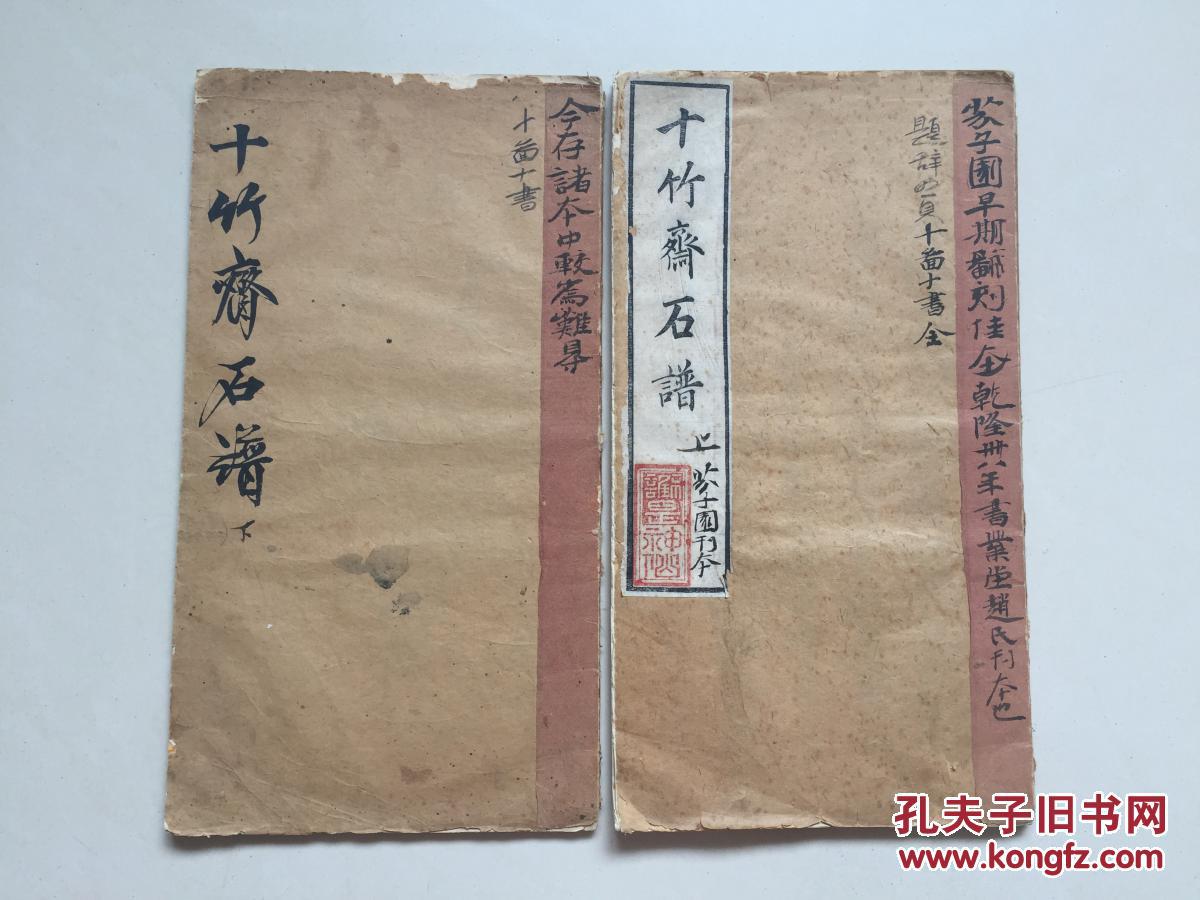 芥子園早期翻刻佳本乾隆卅八年書業堂趙氏刊本也
題辭四頁十畵十書全
十竹齋石譜
上
芥子園刊本
今存諸本中較為難尋
十畵十書
十竹齋石譜
下
孔夫子旧书网
www.kongfz.com